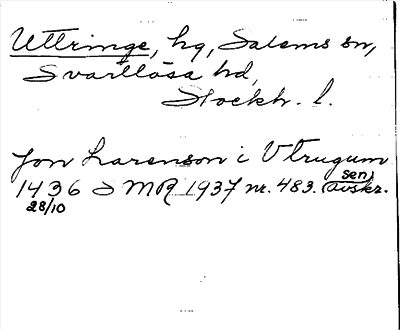 Uttringe, hg, Salems sn,
Svartlösa hd,
Stockh. l.
Jon Larensson i Vtrugum
1436 D MR 1937 nr. 483. (sen) avskr.
28/10